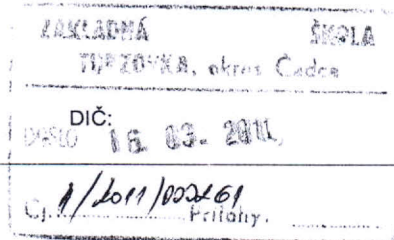 ZÁKLADNÁ ŠKOLA
TURZOVKA, okres Čadca
DIČ:
DOŠLO 16. 03. 2011
Čj. 1/2011/002261 Prílohy.